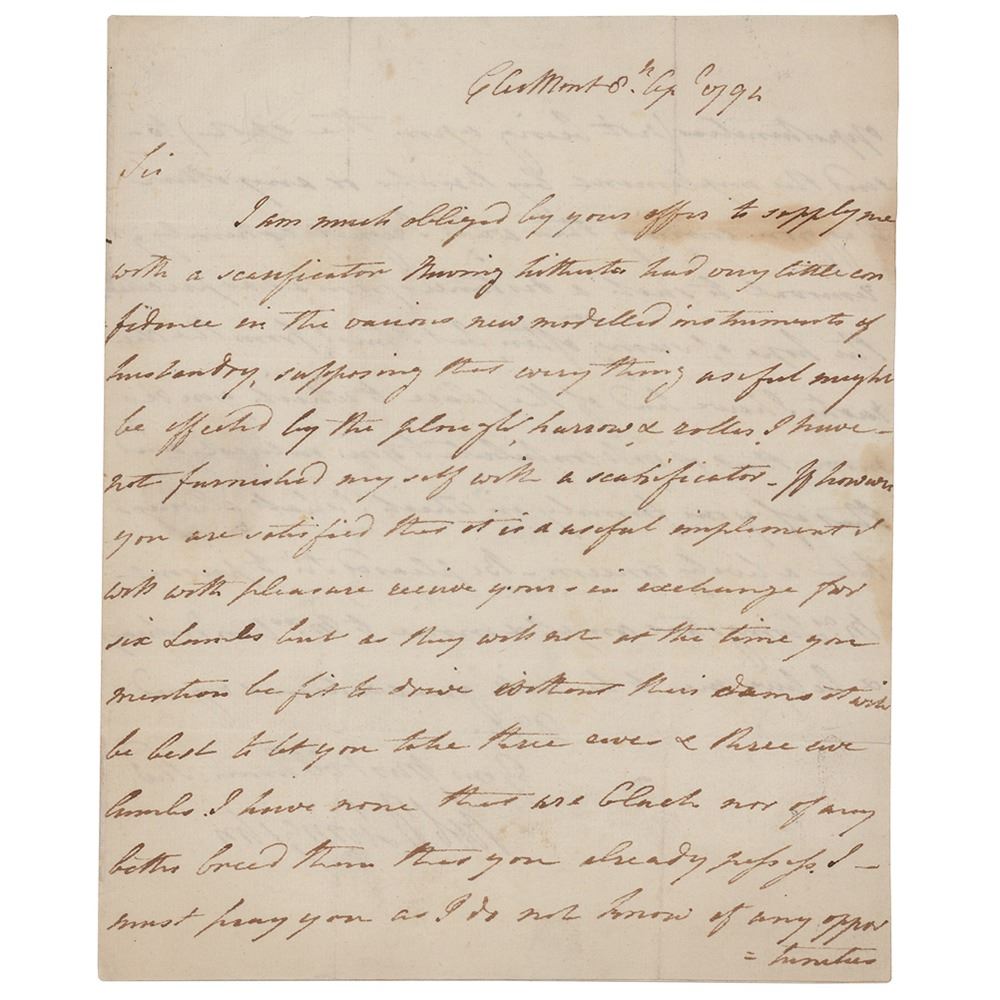 ClerMont 8th Apl 1794
Sir
I am much obliged by your offer to supply me
with a scarificator Having hitherto had very little con
fidence in the various new modelled instruments of
husbandry, supposing that every thing useful might
be effected by the plough, harrow & roller I have
not furnished my self with a scarificator - If however
you are satisfied that it is a useful implement I
will with pleasure receive yours in exchange for
six Lambs but as they will not at the time you
mention be fit to drive without their dams it will
be best to let you take three ewes & three ewe
lambs. I have none that are black nor of any
better breed then that you already possess. I -
must pray you as I do not know of any oppor
= tunities